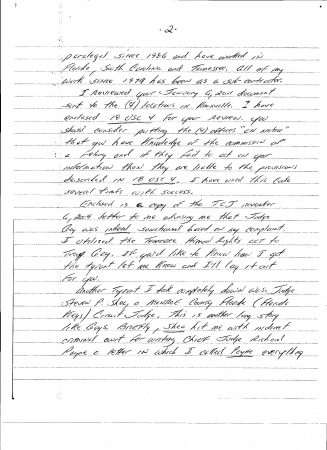 - 2 -
paralegal since 1986 and have worked in
Florida, South Carolina and Tennessee. All of my
work since 1979 has been as a sub-contractor.
I reviewed your January 6, 2011 document
sent to the (4) locations in Knoxville. I have
enclosed 18 USC 4 for your review. You
should consider putting the (4) officers "on notice"
that you have knowledge of the commission of
a felony and if they fail to act on your
information then they are liable to the provisions
described in 18 USC 4. I have used this Code
several times with success.
Enclosed is a copy of the TCJ
6, 2009 letter to me advising me that Judge
was indeed sanctioned based on my complaint.
I utilized the Tennessee Human Rights Act to
If you'd like to know how I got
the tyrant let me know and I'll lay it out
for you.
Another Tyrant I shot completely down was Judge
Steven P. Shea, a Monroe County Florida (Florida
Keys) Circuit Judge. This is another long story
like Briefly, Shea hit me with indirect
criminal court for writing Chief Judge Richard
Payne a letter in which I called Payne everything